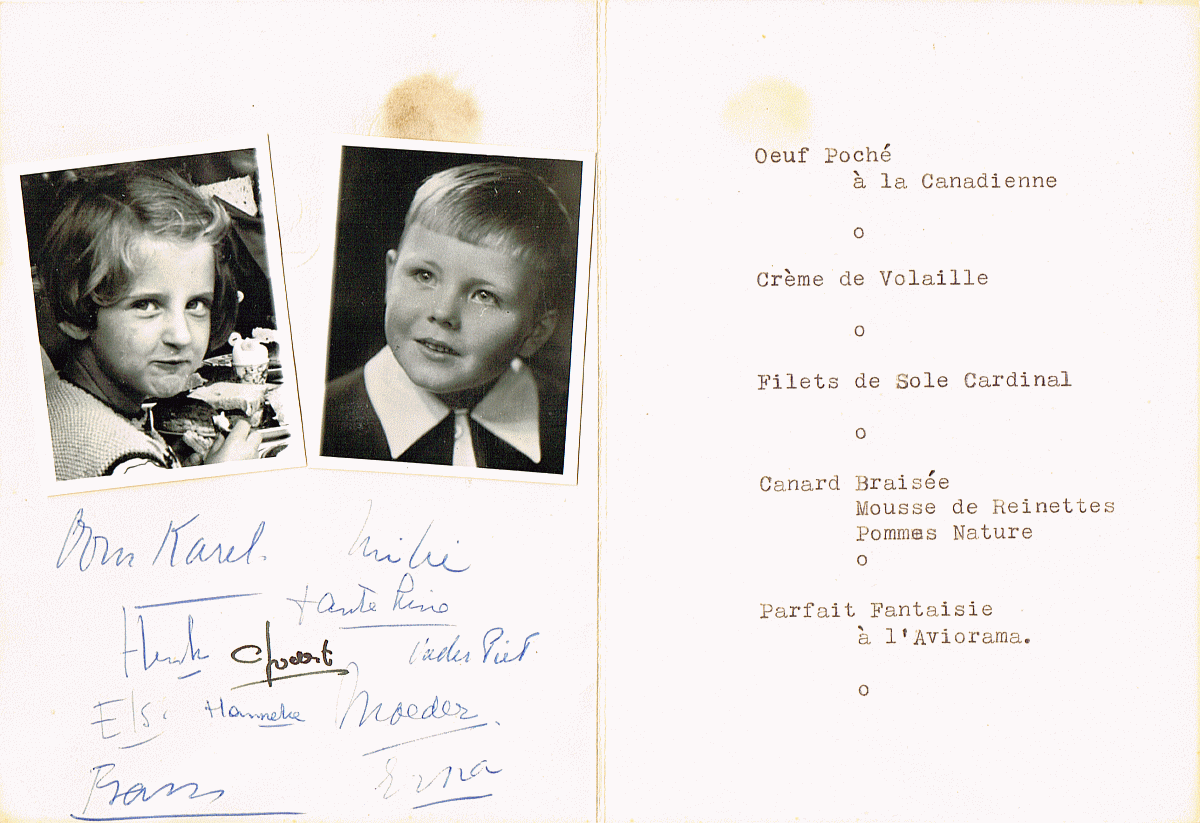 Oom Karel.
tante Rino
Henk
Vader Piet.
Els.
Hanneke
Moeder.
Erna
Oeuf Poché
à la Canadienne
o
Crème de Volaille
o
Filets de Sole Cardinal
o
Canard Braisée
Mousse de Reinettes
Pommes Nature
o
Parfait Fantaisie
à l'Aviorama.
o